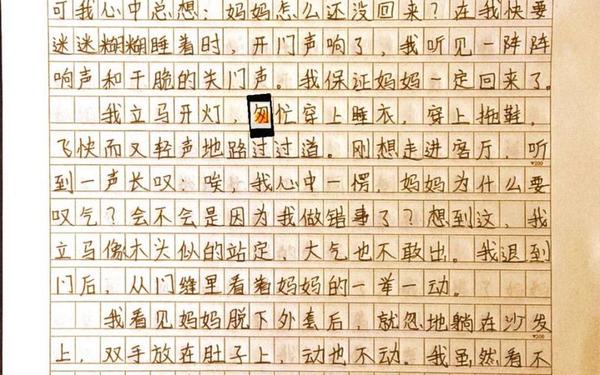 可我心中总想：妈妈怎么还没回来？在我快要
迷迷糊糊睡着时，开门声响了，我听见一阵阵
响声和干脆的关门声。我保证妈妈一定回来了。
我立马开灯，匆忙穿上睡衣，穿上拖鞋，
飞快而又轻声地路过过道。刚想走进客厅，听
到一声长叹：唉，我心中一愣，妈妈为什么要
叹气？会不会是因为我做错事了？想到这，我
立马像木头似的站定，大气也不敢出。我退到
门后，从门缝里看着妈妈的一举一动。
我看见妈妈脱下外套后，就忽地躺在沙发
上，双手放在肚子上，动也不动。我虽然看不